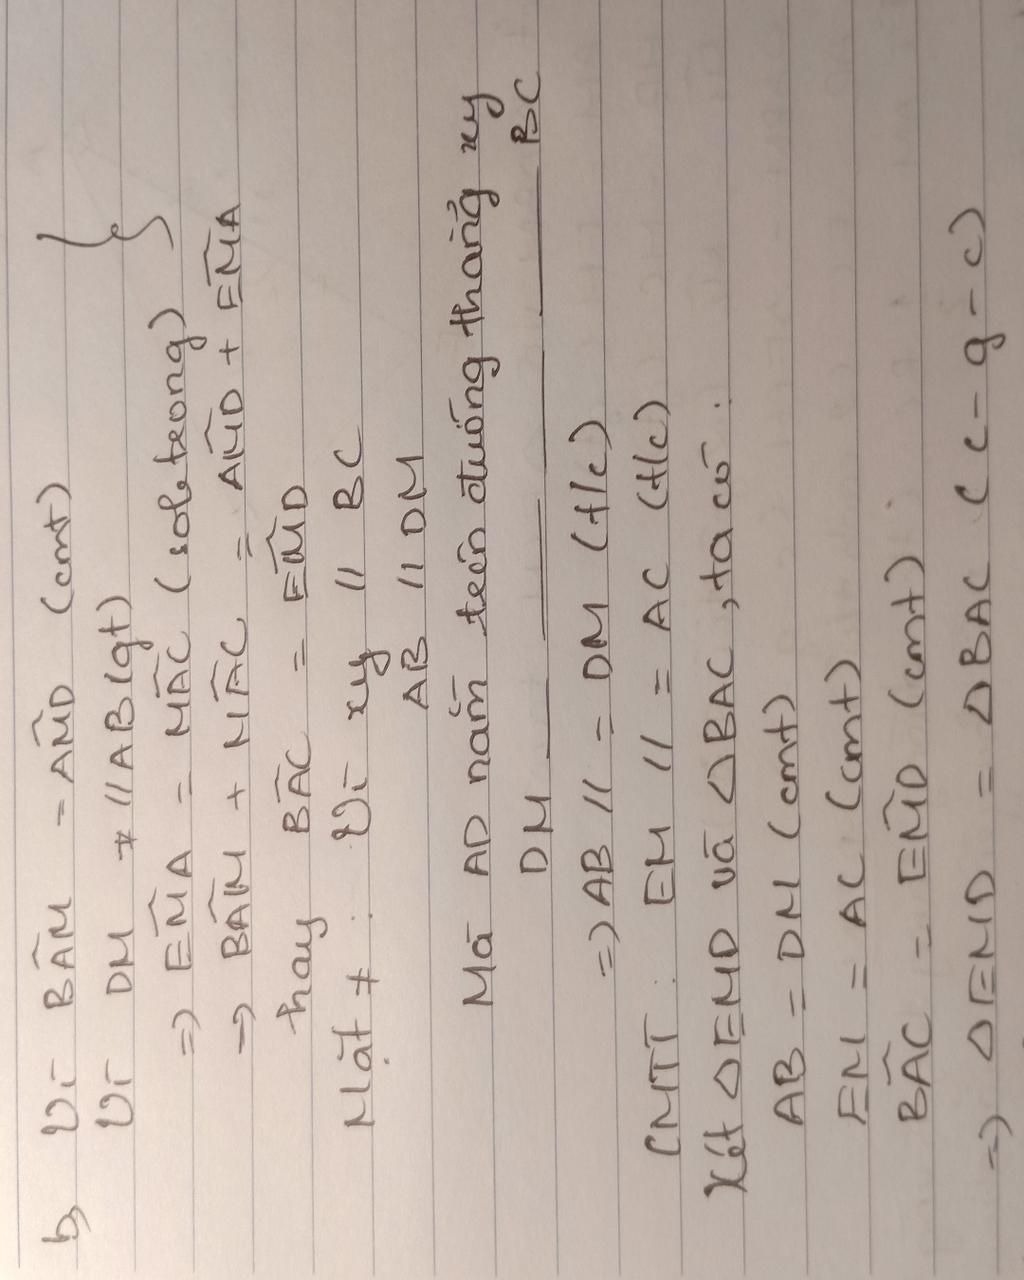 b, Vì BÂM = AM̂D (cmt)
Vì DM // AB (gt)
=> EM̂A = MÂC (sole trong)
=> BÂM + MÂC = AM̂D + EM̂A
hay BÂC = EM̂D
Mặt ≠ : Vì xy // BC
AB // DM
Mà AD nằm trên đường thẳng xy
DM ___ BC
=> AB // = DM (t/c)
CMTT : EM // = AC (t/c)
Xét ΔEMD và ΔBAC, ta có :
AB = DM (cmt)
EM = AC (cmt)
BÂC = EM̂D (cmt)
=> ΔEMD = ΔBAC (c-g-c)